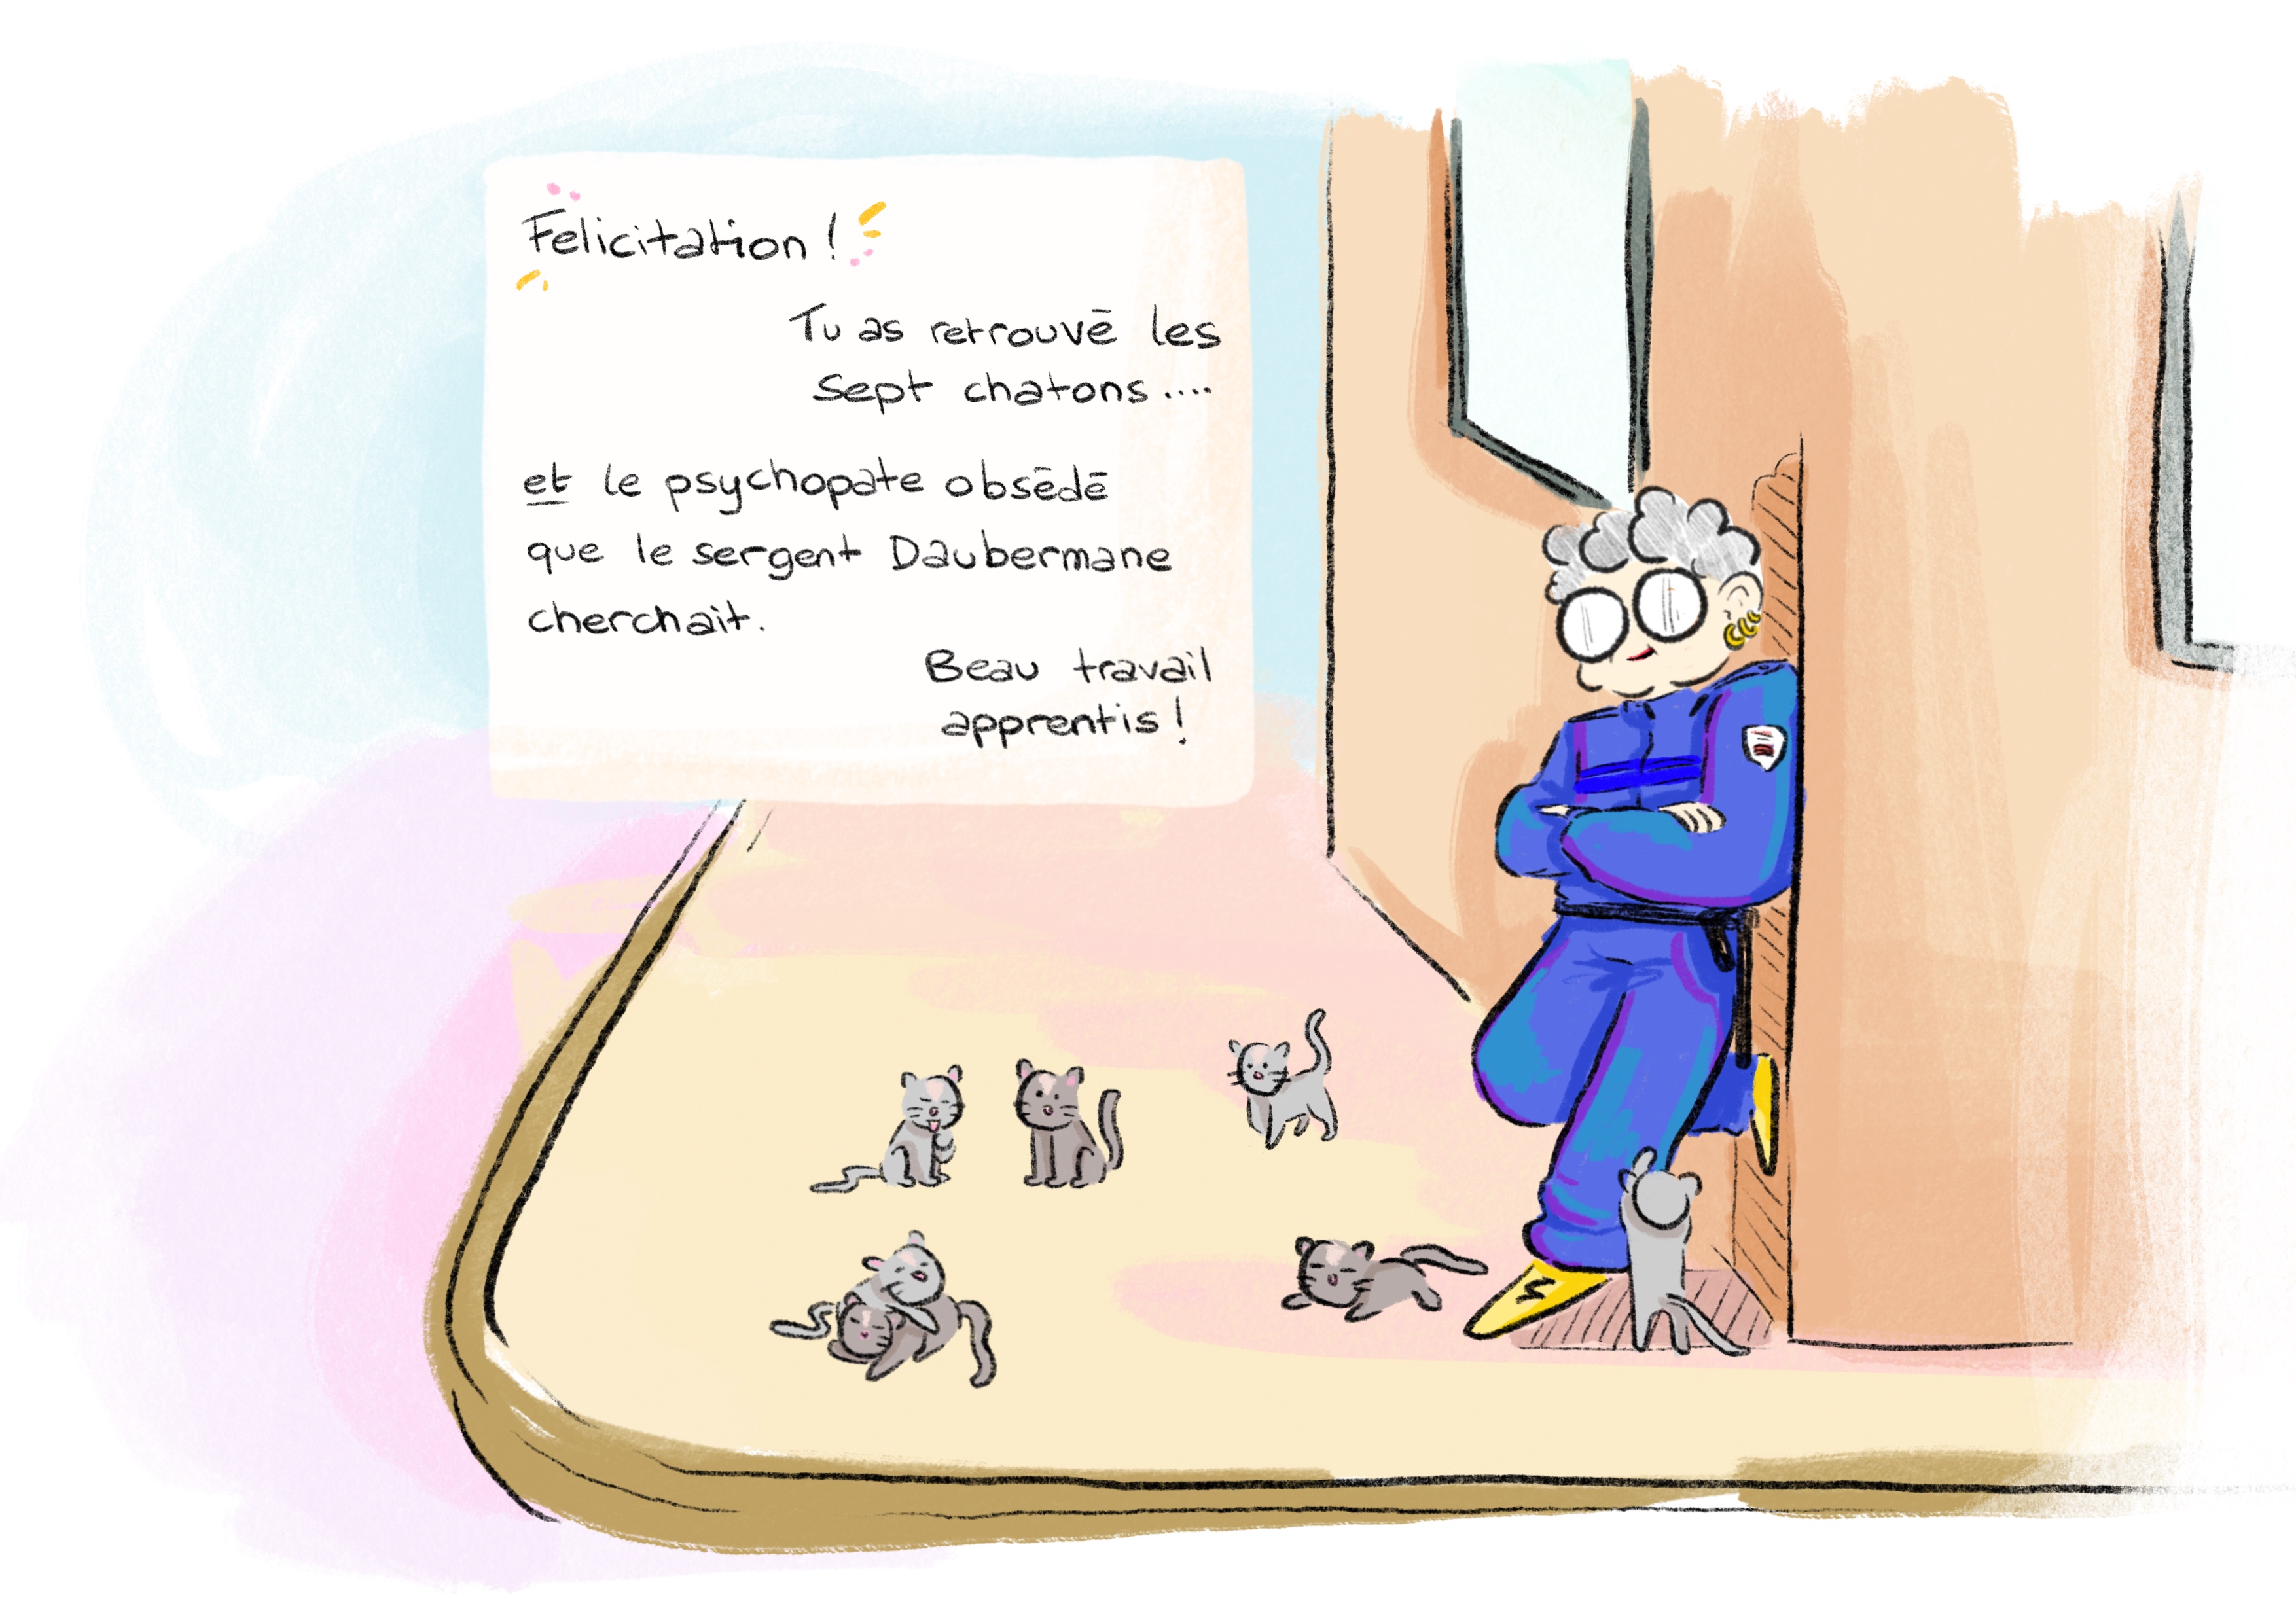 Felicitation !
Tu as retrouvé les
sept chatons....
et le psychopate obsédé
que le sergent Daubermane
cherchait.
Beau travail
apprentis !